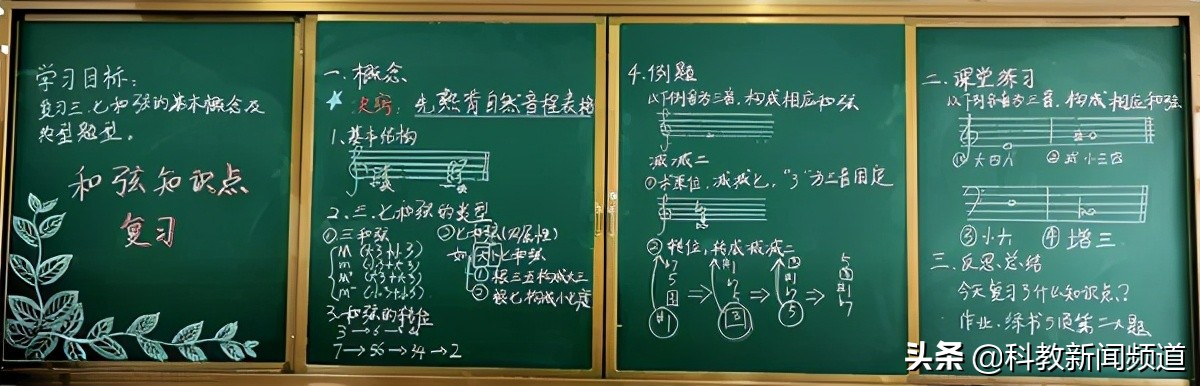 学习目标:
复习三.七和弦的基本概念及
典型题型。
和弦知识点
复习
一.概念
先熟背自然音程表格
1.基本结构
2.三.七和弦的类型
①三和弦
②七和弦(以属性)
如:大小七和弦
①根三五构成大三
②根七构成小七度
3.和弦的转位
3→6→64
7→56→34→2
4.例题
以下例音为三音.构成相应和弦
减减二
①求原位.减减七."3"为三音固定
②转位,转成减减二
二.课堂练习
以下例音为三音,构成相应和弦
①大四六
②减小三四
③小六
④增三
三.反思总结
今天复习了什么知识点?
作业.练书5页第二大题
头条 @科教新闻频道